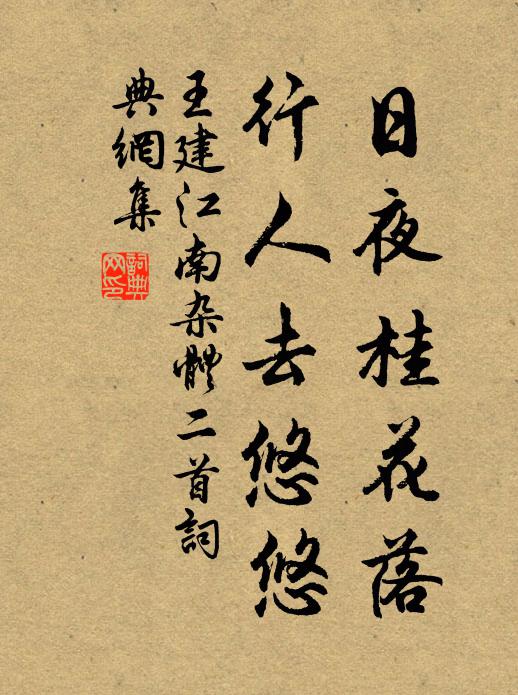 日夜桂花落
行人去悠悠
王建江南杂體二首詞
典網集
詞典
网印